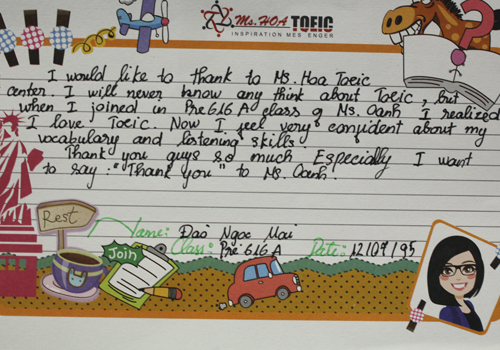 Ms. HOA TOEIC
INSPIRATION MESSENGER
I would like to thank to Ms. Hoa Toeic
center. I will never know any think about Toeic, but
when I joined in Pre 616 A class of Ms. Oanh I realized
I love Toeic. Now I feel very confident about my
vocabulary and listening skills.
Thank you guys so much Especially I want
to say: "Thank you" to Ms. Oanh.
Rest
Name: Đào Ngọc Mai
Join
Class: Pre 616 A Date: 12/09/95